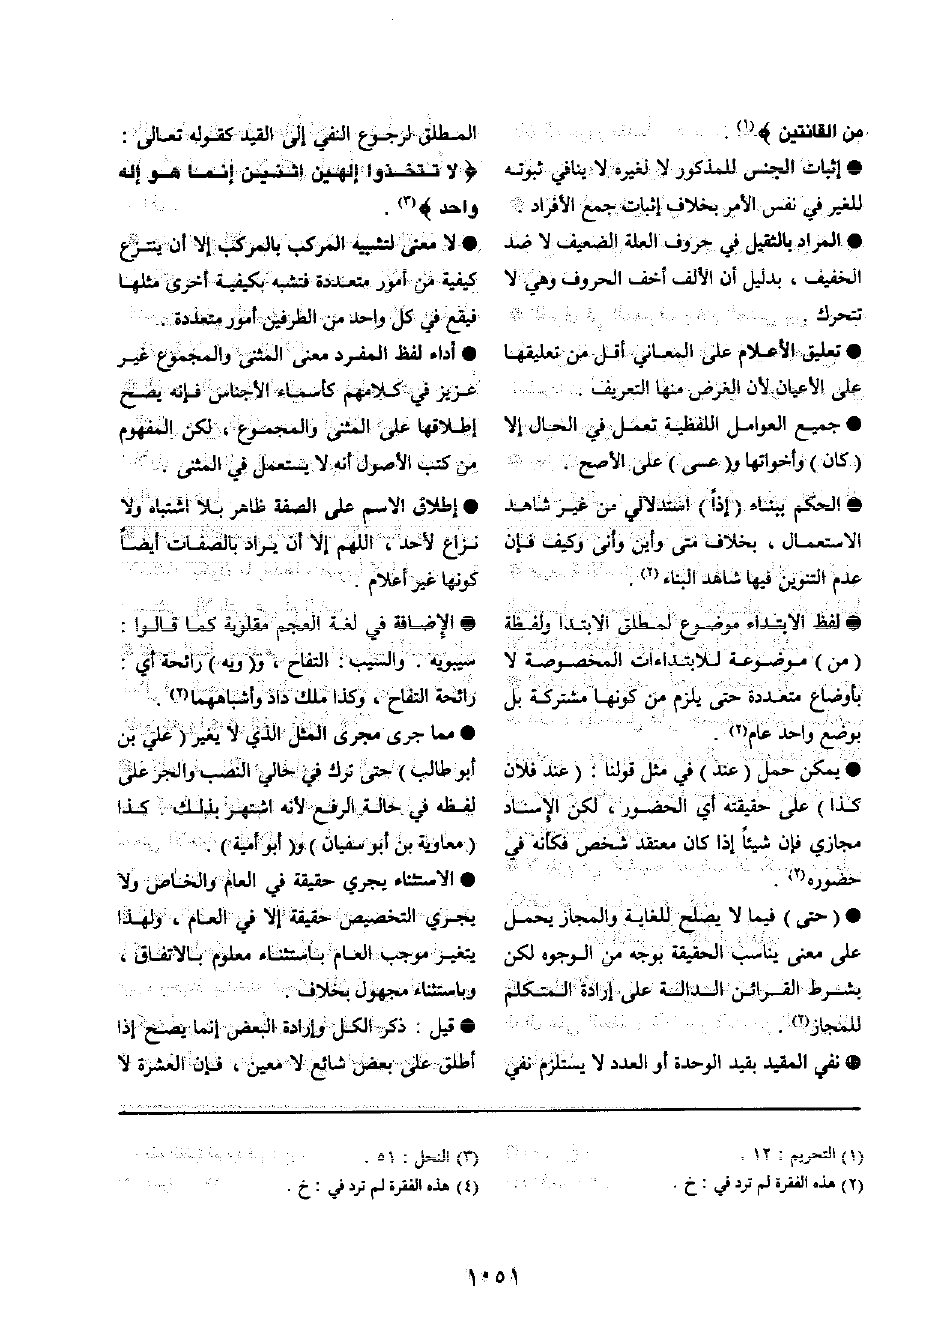 من القانتين ﴾(١) .
● إثبات الجنس للمذكور لا لغيره لا ينافي ثبوته
للغير في نفس الأمر بخلاف إثبات جمع الأفراد .
● المراد بالثقيل في حروف العلة الضعيف لا ضد
الخفيف ، بدليل أن الألف أخف الحروف وهي لا
تتحرك .
● تعليق الأعلام على المعاني أقل من تعليقها
على الأعيان لأن الغرض منها التعريف .
● جميع العوامل اللفظية تعمل في الحال إلا
( كان ) وأخواتها و( عسى ) على الأصح .
● الحكم ببناء ( إذاً ) استدلالي من غير شاهد
الاستعمال ، بخلاف متى وأين وأنى وكيف فإن
عدم التنوين فيها شاهد البناء (٢) .
● لفظ الابتداء موضوع لمطلق الابتدا ولفظة
( من ) موضوعة للابتداءات المخصوصة لا
بأوضاع متعددة حتى يلزم من كونها مشتركة بل
بوضع واحد عام(٢) .
● يمكن حمل ( عند ) في مثل قولنا : ( عند فلان
كذا ) على حقيقته أي الحضور ، لكن الإسناد
مجازي فإن شيئاً إذا كان معتقد شخص فكأنه في
حضوره(٢) .
● ( حتى ) فيما لا يصلح للغاية والمجاز يحمل
على معنى يناسب الحقيقة بوجه من الوجوه لكن
بشرط القرائن الدالة على إرادة المتكلم
للمجاز(٢) .
● نفي المقيد بقيد الوحدة أو العدد لا يستلزم نفي
المطلق لرجوع النفي إلى القيد كقوله تعالى :
﴿ لا تتخذوا إلهين اثنين إنما هو إله
واحد ﴾(٣) .
● لا معنى لتشبيه المركب بالمركب إلا أن ينتزع
كيفية من أمور متعددة فتشبه بكيفية أخرى مثلها
فيقع في كل واحد من الطرفين أمور متعددة .
● أداء لفظ المفرد معنى المثنى والمجموع غير
عزيز في كلامهم كأسماء الأجناس فإنه يصح
إطلاقها على المثنى والمجموع ، لكن المفهوم
من كتب الأصول أنه لا يستعمل في المثنى .
● إطلاق الاسم على الصفة ظاهر بلا اشتباه ولا
نزاع لأحد ، اللهم إلا أن يراد بالصفات أيضاً
كونها غير أعلام .
● الإضافة في لغة العجم مقلوبة كما قالوا :
سيبويه . والسيب : التفاح ، و( ويه ) رائحة أي :
رائحة التفاح ، وكذا ملك داد وأشباههما(٢) .
● مما جرى مجرى المثل الذي لا يغير ( علي بن
أبو طالب ) حتى ترك في حالي النصب والجر على
لفظه في حالة الرفع لأنه اشتهر بذلك . كذا
( معاوية بن أبو سفيان ) و( أبو أمية ) .
● الاستثناء يجري حقيقة في العام والخاص ولا
يجري التخصيص حقيقة إلا في العام ، ولهذا
يتغير موجب العام باستثناء معلوم بالاتفاق ،
وباستثناء مجهول بخلاف .
● قيل : ذكر الكل وإرادة البعض إنما يصح إذا
أطلق على بعض شائع لا معين ، فإن العشرة لا
(١) التحريم : ١٢ .
(٢) هذه الفقرة لم ترد في : خ .
(٣) النحل : ٥١ .
(٤) هذه الفقرة لم ترد في : خ .
١٠٥١